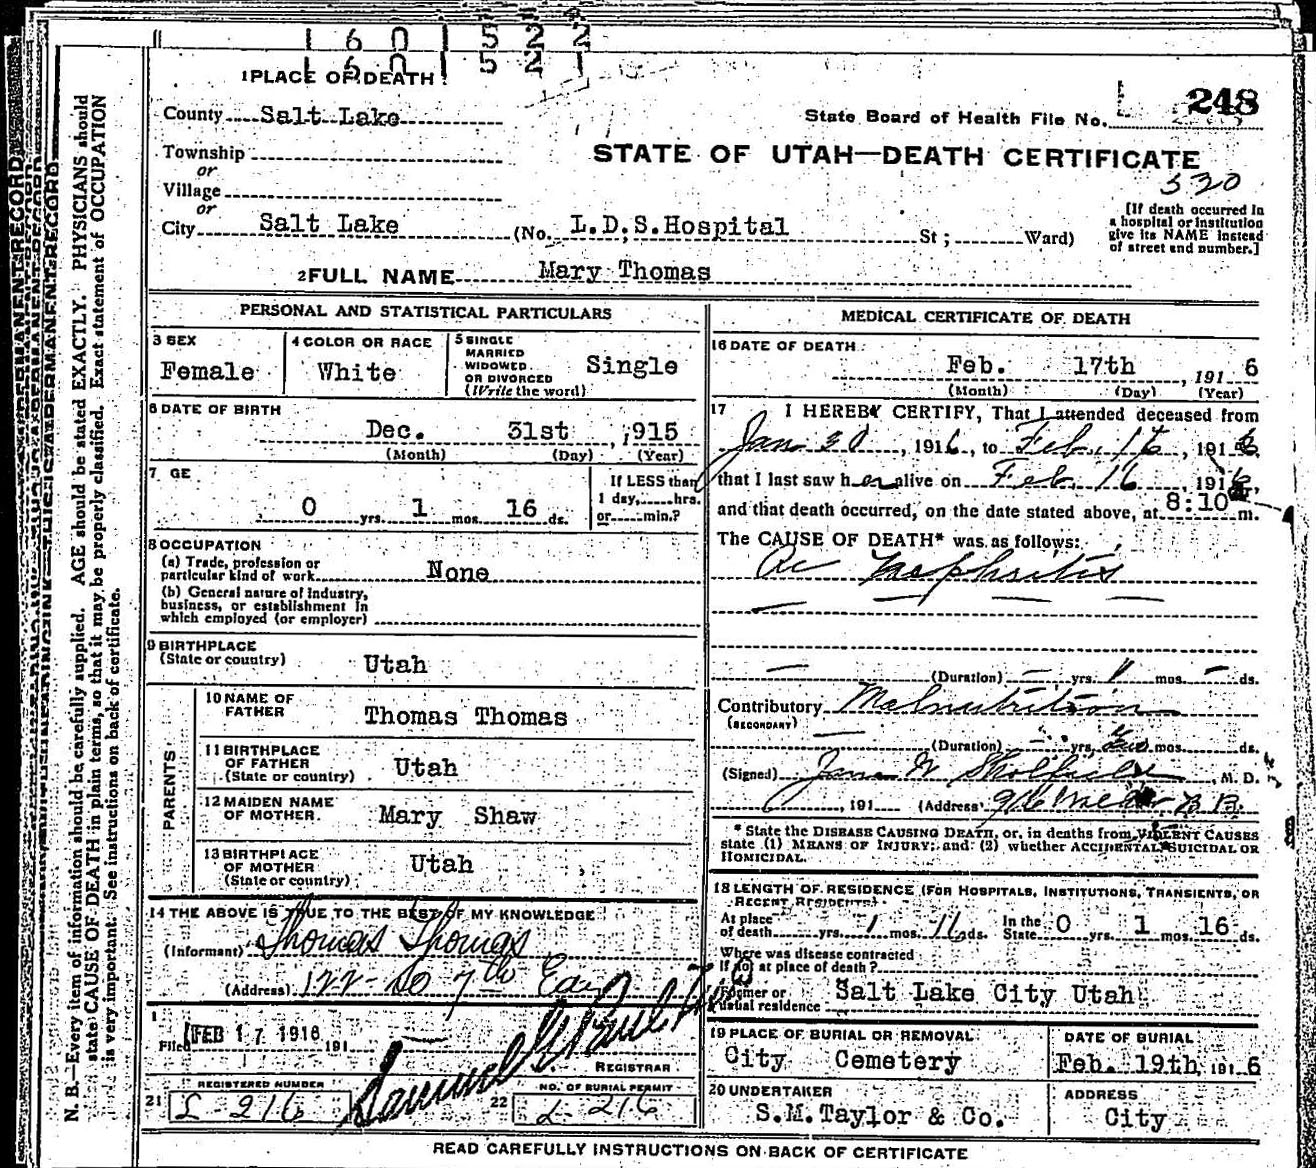 1 6 0 1 5 2 2
1 PLACE OF DEATH
248
County Salt Lake
State Board of Health File No.
Township
or
STATE OF UTAH—DEATH CERTIFICATE
Village
or
530
City Salt Lake (No. L.D.S.Hospital St ; Ward)
[If death occurred in
a hospital or institution
give its NAME instead
of street and number.]
2 FULL NAME Mary Thomas
PERSONAL AND STATISTICAL PARTICULARS
3 SEX
Female
4 COLOR OR RACE
White
5 SINGLE
MARRIED
WIDOWED
OR DIVORCED
(Write the word)
Single
6 DATE OF BIRTH
Dec. 31st , 1915
(Month) (Day) (Year)
7 GE
0 yrs. 1 mos. 16 ds.
If LESS than
1 day, hrs.
or min.?
8 OCCUPATION
(a) Trade, profession or
particular kind of work None
(b) General nature of Industry,
business, or establishment in
which employed (or employer)
9 BIRTHPLACE
(State or country) Utah
PARENTS
10 NAME OF
FATHER Thomas Thomas
11 BIRTHPLACE
OF FATHER
(State or country) Utah
12 MAIDEN NAME
OF MOTHER Mary Shaw
13 BIRTHPLACE
OF MOTHER
(State or country) Utah
14 THE ABOVE IS TRUE TO THE BEST OF MY KNOWLEDGE
(Informant) Thomas Thomas
(Address) 122 - So 7th East
Filed FEB 17 1916 191
REGISTRAR
21 REGISTERED NUMBER
L-216
22 NO. OF BURIAL PERMIT
L-216
MEDICAL CERTIFICATE OF DEATH
16 DATE OF DEATH
Feb. 17th , 191 6
(Month) (Day) (Year)
17 I HEREBY CERTIFY, That I attended deceased from
Jan 30 , 1916, to Feb. 16 , 1916,
that I last saw her alive on Feb 16 , 1916,
and that death occurred, on the date stated above, at 8:10 m.
The CAUSE OF DEATH* was as follows:
Ac Nephritis
(Duration) yrs. 1 mos. ds.
Contributory Malnutrition
(SECONDARY)
(Duration) yrs. mos. ds.
(Signed) M. D.
, 191 (Address)
* State the DISEASE CAUSING DEATH, or, in deaths from VIOLENT CAUSES
state (1) MEANS OF INJURY; and (2) whether ACCIDENTAL, SUICIDAL OR
HOMICIDAL.
18 LENGTH OF RESIDENCE (FOR HOSPITALS, INSTITUTIONS, TRANSIENTS, OR
RECENT RESIDENTS)
At place
of death yrs. 1 mos. 16 ds.
In the
State 0 yrs. 1 mos. 16 ds.
Where was disease contracted
If not at place of death?
Former or
usual residence Salt Lake City Utah
19 PLACE OF BURIAL OR REMOVAL
City Cemetery
DATE OF BURIAL
Feb. 19th, 191 6
20 UNDERTAKER
S.M.Taylor & Co.
ADDRESS
City
READ CAREFULLY INSTRUCTIONS ON BACK OF CERTIFICATE
N. B.—Every item of information should be carefully supplied. AGE should be stated EXACTLY. PHYSICIANS should
state CAUSE OF DEATH in plain terms, so that it may be properly classified. Exact statement of OCCUPATION
is very important. See instructions on back of certificate.